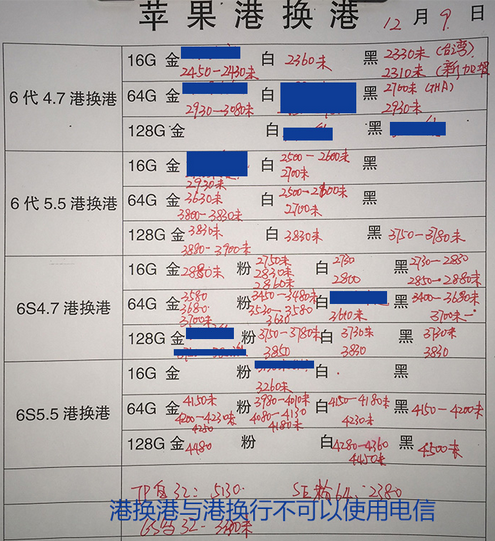 苹果港换港 12月9日
16G 金 白 2360未 黑 2330未(台湾)
2450-2430未 2310未(新加坡
6代4.7港换港 64G 金 白 黑 2700未(THA)
2930-3080未 2930未
128G 金 白 黑
16G 金 白 2500-2600未 黑
2930未 2700未
6代5.5港换港 64G 金 3630未 白 黑
3800-3830未 2700未
128G 金 3830未 白 3830未 黑 3750-3780未
3880-3900未
16G 金 粉 2750未 白 2730 黑 2730-2830
2830未 2800 2850-2880未
2860未
6S4.7港换港 64G 金 3580 粉 3450-3480未 白 黑 3400-3680未
3680 3530-3580 3700未
3700未 3630
128G 金 粉 3750-3780未 白 3730未 黑 3730未
3850 3830 3830
16G 金 粉 白 黑
3260未
6S5.5港换港 64G 金 4150未 粉 3980-4010未 白 4150-4180未 黑 4150-4200未
4200-4230未 4080-4130 4230未
4250 4180未
128G 金 4480 粉 白 4280-4360 黑 4500未
4450未
32: 5130 64: 2380
港换港与港换行不可以使用电信